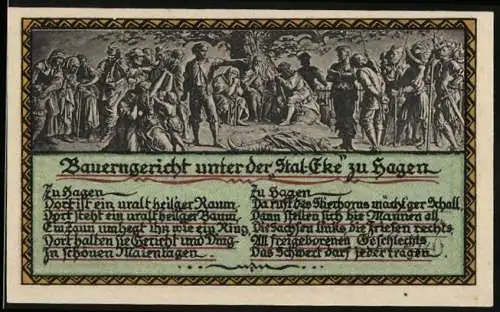 Bauerngericht unter der „Stal-Eke" zu Hagen
Zu Hagen
Dort ist ein uralt heilger Raum,
Dort steht ein uralt heilger Baum,
Ein Zaun umhegt ihn wie ein Ring,
Dort halten sie Gericht und Ding
In schönen Maientagen.
Zu Hagen
Da ruft des Stierhorns mächt'ger Schall,
Dann stellen sich die Mannen all,
Die Sachsen links die Friesen rechts,
All freigeborenen Geschlechts
Das Schwert darf jeder tragen.